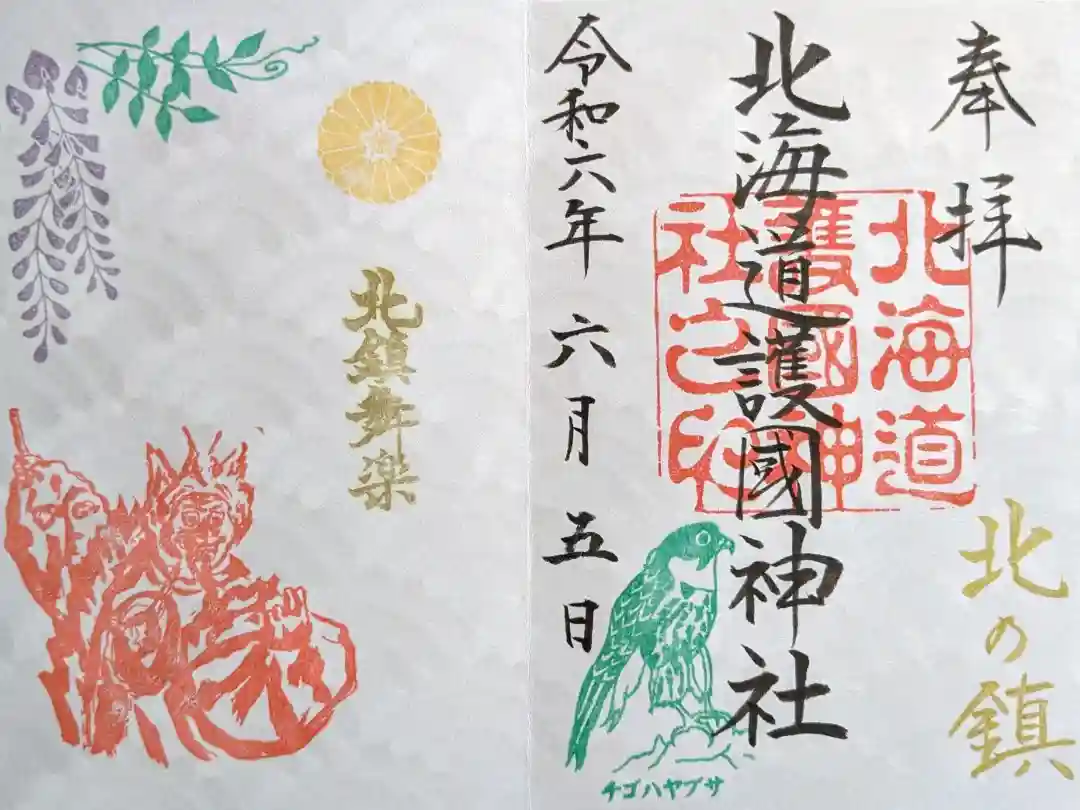 奉拝
北海道
護國神
社之印
北海道護國神社
北の鎮
令和六年 六月 五日
チゴハヤブサ
北鎮舞楽